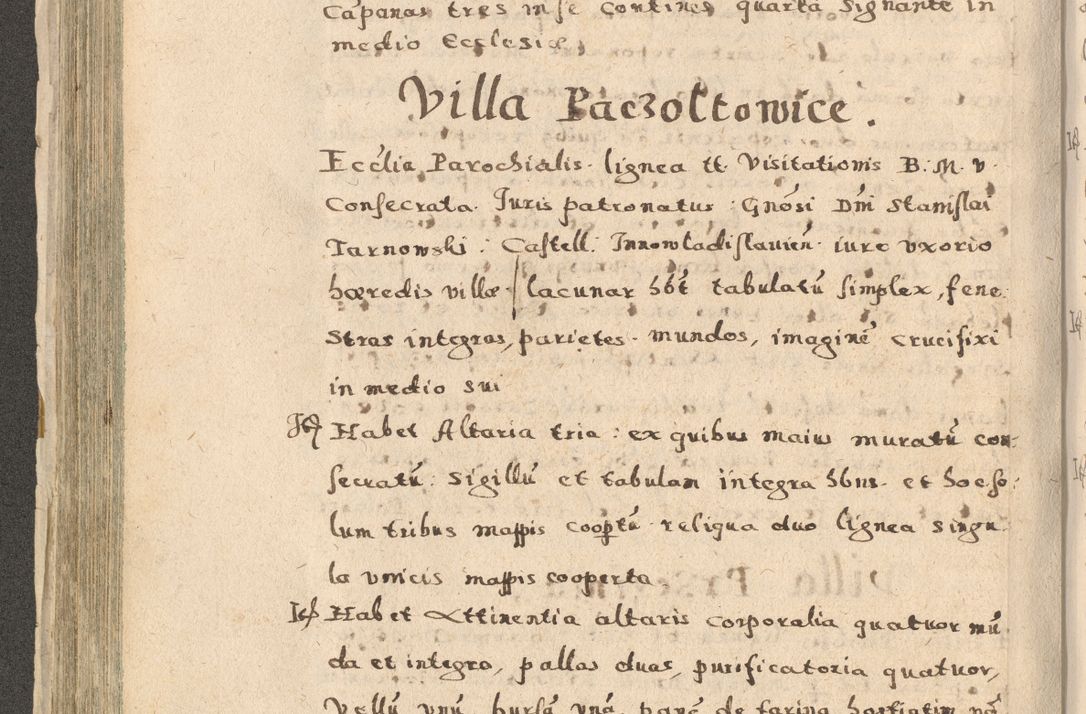 Capanas tres in se contines quarta signante in
medio Ecclesiæ,
Villa Paczoltowice.
Ecclia Parochialis lignea tt. Visitationis B. M. V.
Consecrata. Iuris patronatus: Gnosi Dni Stanislai
Tarnowski: Castell: Innowladislavien. iure vxorio
hæredis villæ. lacunar hbt tabulatu simplex, fene
stras integras, parietes mundos, imagine crucifixi
in medio sui
It Habet Altaria tria: ex quibus maius muratu con-
secratu: sigillu et tabulam integra hbns. et hoc so-
lum tribus mappis coopertu reliqua duo lignea singu
la vnicis mappis cooperta
It Habet Attinentia altaris corporalia quatuor mu
da et integra, pallas duas, purificatoria quatuor,
Vellu vnu, bursa vna, pane de farina hostiatim